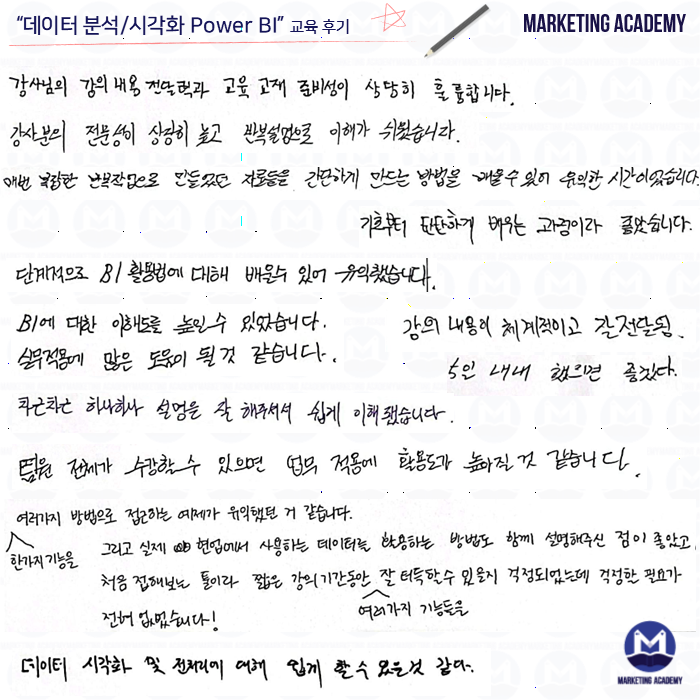 “데이터 분석/시각화 Power BI” 교육 후기
MARKETING ACADEMY
강사님의 강의 내용 전달력과 교육 교재 준비성이 상당히 훌륭합니다.
강사분의 전문성이 상당히 높고 반복설명으로 이해가 쉬웠습니다.
매번 복잡한 반복작업으로 만들었던 자료들을 간단하게 만드는 방법을 배울수있어 유익한 시간이었습니다.
기초부터 탄탄하게 배우는 과정이라 좋았습니다.
단계적으로 BI 활용법에 대해 배울수 있어 유익했습니다.
BI에 대한 이해도를 높일 수 있었습니다.
실무적용에 많은 도움이 될 것 같습니다.
강의 내용이 체계적이고 잘 전달됨.
5일 내내 했으면 좋겠다.
차근차근 하나하나 설명을 잘 해주셔서 쉽게 이해됐습니다.
팀원 전체가 수강할 수 있으면 업무 적용에 활용도가 높아질 것 같습니다.
여러가지 방법으로 접근하는 예제가 유익했던 거 같습니다.
한가지 기능을
그리고 실제 현업에서 사용하는 데이터를 활용하는 방법도 함께 설명해주신 점이 좋았고,
처음 접해보는 툴이라 짧은 강의기간동안 잘 터득할 수 있을지 걱정되었는데 걱정할 필요가
여러가지 기능들을
전혀 없었습니다!
데이터 시각화 및 전처리에 대해 쉽게 할 수 있을것 같다.
MARKETING ACADEMY